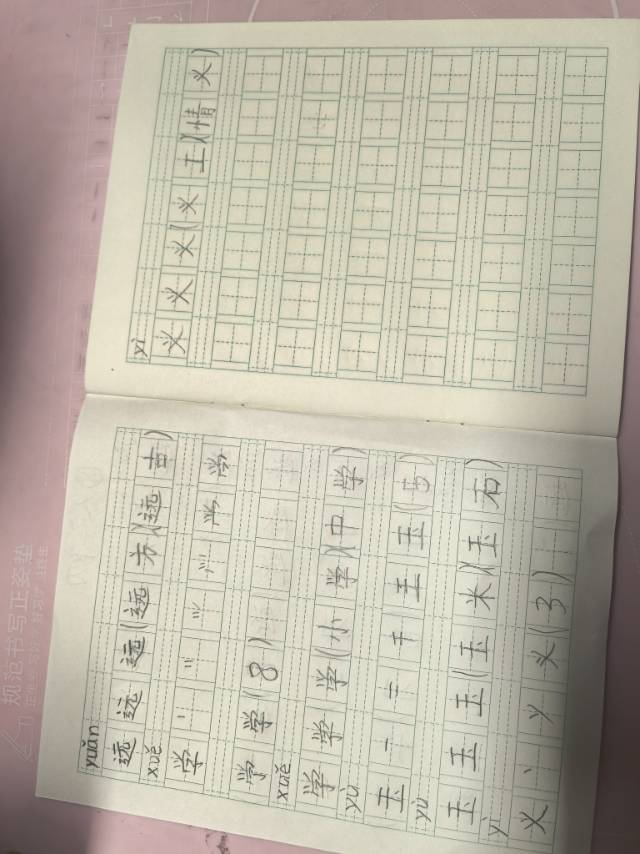 yuǎn
远远远(远方)(远古)
xuě
学丶丷⺍
学学(8)
xuě
学学学(小学)(中学)
yù
玉一二干王玉(5)
yù
玉玉玉(玉米)(玉石)
yì
义丶义(3)
yì
义义义(义工)(情义)
规范书写正姿垫